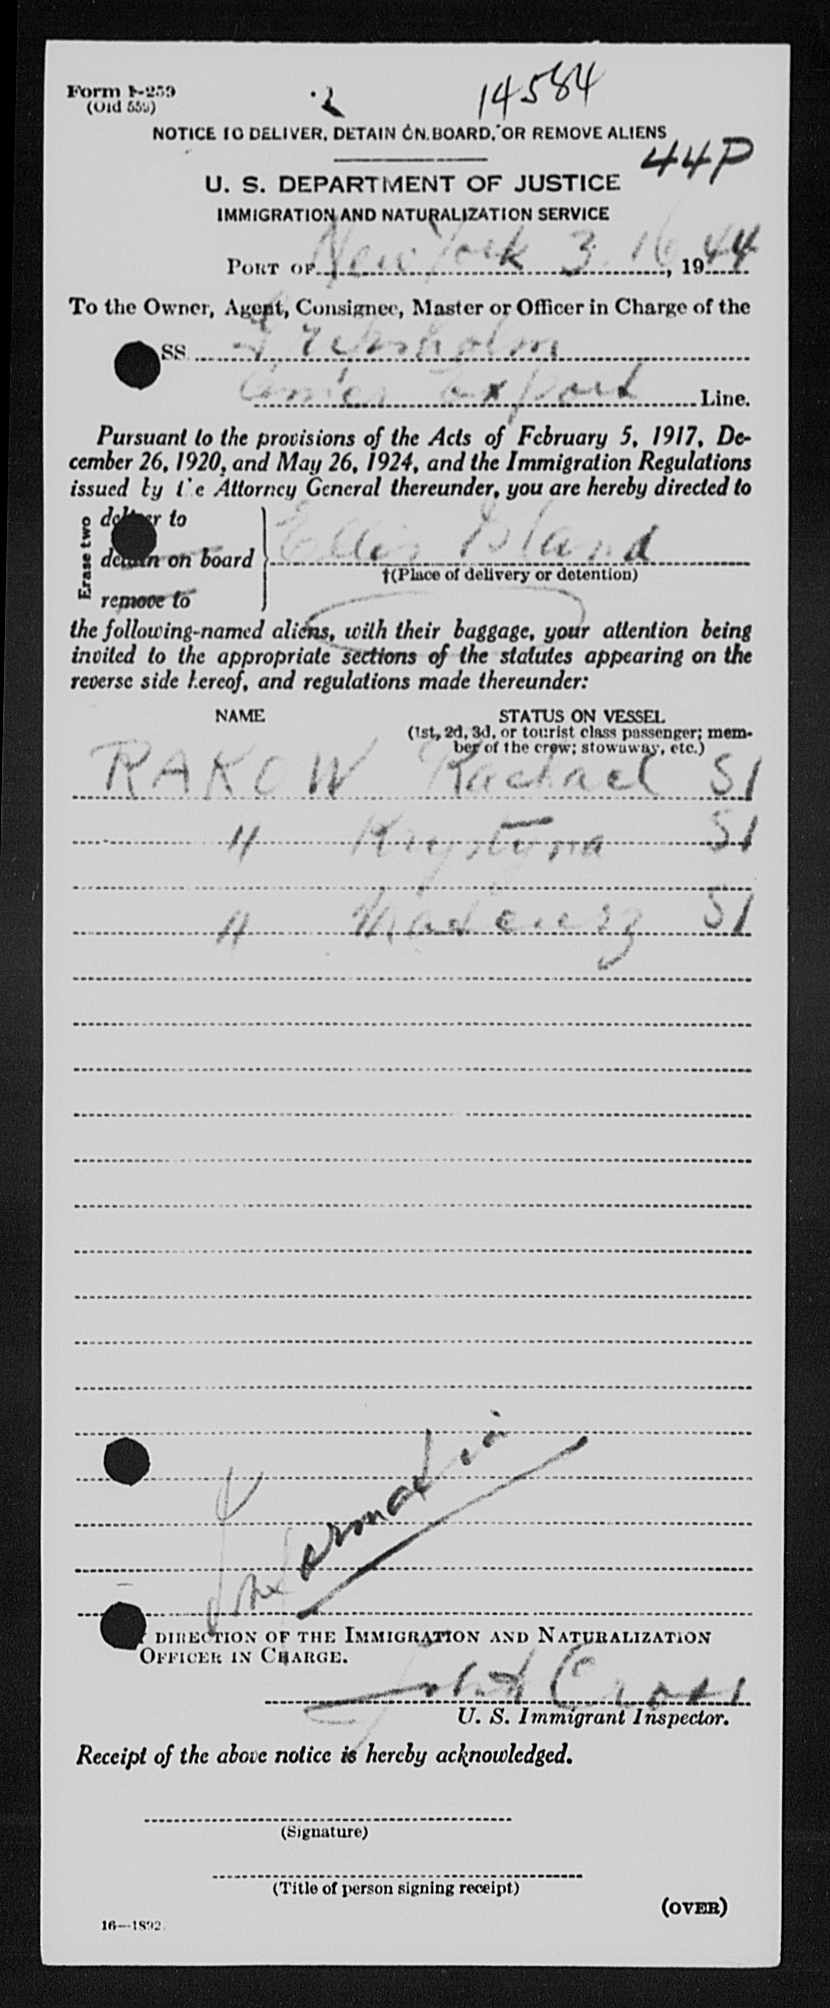 Form I-259
(Old 559)
14584
NOTICE TO DELIVER, DETAIN ON BOARD, OR REMOVE ALIENS
44P
U. S. DEPARTMENT OF JUSTICE
IMMIGRATION AND NATURALIZATION SERVICE
PORT OF New York 3. 16, 1944
To the Owner, Agent, Consignee, Master or Officer in Charge of the
SS
Amer Export Line.
Pursuant to the provisions of the Acts of February 5, 1917, De-
cember 26, 1920, and May 26, 1924, and the Immigration Regulations
issued by the Attorney General thereunder, you are hereby directed to
Erase two
deliver to
detain on board Ellis Island
†(Place of delivery or detention)
remove to
the following-named aliens, with their baggage, your attention being
invited to the appropriate sections of the statutes appearing on the
reverse side hereof, and regulations made thereunder:
NAME STATUS ON VESSEL
(1st, 2d, 3d, or tourist class passenger; mem-
ber of the crew; stowaway, etc.)
RAKOW Rachael SI
" Krystyna SI
" Mateusz SI
Information
DIRECTION OF THE IMMIGRATION AND NATURALIZATION
OFFICER IN CHARGE.
John A Cross
U. S. Immigrant Inspector.
Receipt of the above notice is hereby acknowledged.
(Signature)
(Title of person signing receipt)
(OVER)
16—1892